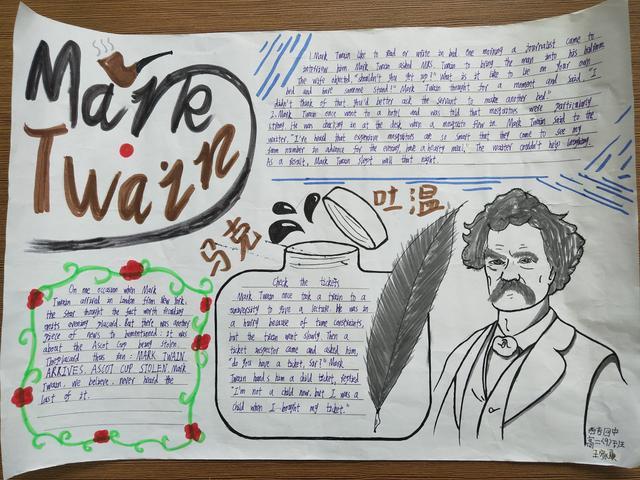 Mark
Twain
1. Mark Twain like to read or write in bed. One morning a journalist came to
interview him. Mark Twain asked MRS. Twain to bring the man into his bedroom
The wife objected, "shouldn't you get up?" What is it like to be on your own
bed and have someone stand?" Mark Twain thought for a moment and said, "I
didn't think of that. you'd better ask the servant to make another bed"
2. Mark Twain once went to a hotel and was told that mosquitoes were particularly
strong. He was checking in at the desk when a mosquito flew in. Mark Twain said to the
waiter, "I've heard that expensive mosquitoes are so smart that they came to see my
room number in advance for the evening, have a hearty meal." The waiter couldn't help laughing.
As a result, Mark Twain slept well that night.
马克
吐温
On one occasion when Mark
Twain arrived in London from New York,
the star thought the fact worth
news evening placard. But there was another
piece of news to be mentioned: it was
about the Ascot Cup being stolen.
The placard thus ran: MARK TWAIN
ARRIVES, ASCOT CUP STOLEN. Mark
Twain, we believe, never heard the
last of it.
Check the tickets
Mark Twain once took a train to a
university to give a lecture. He was in
a hurry because of time constraints,
but the train went slowly. Then a
ticket inspector came and asked him,
"do you have a ticket, Sir?" Mark
Twain hands him a child ticket, replied
"I'm not a child now, but I was a
child when I bought my ticket."
高二(9)班